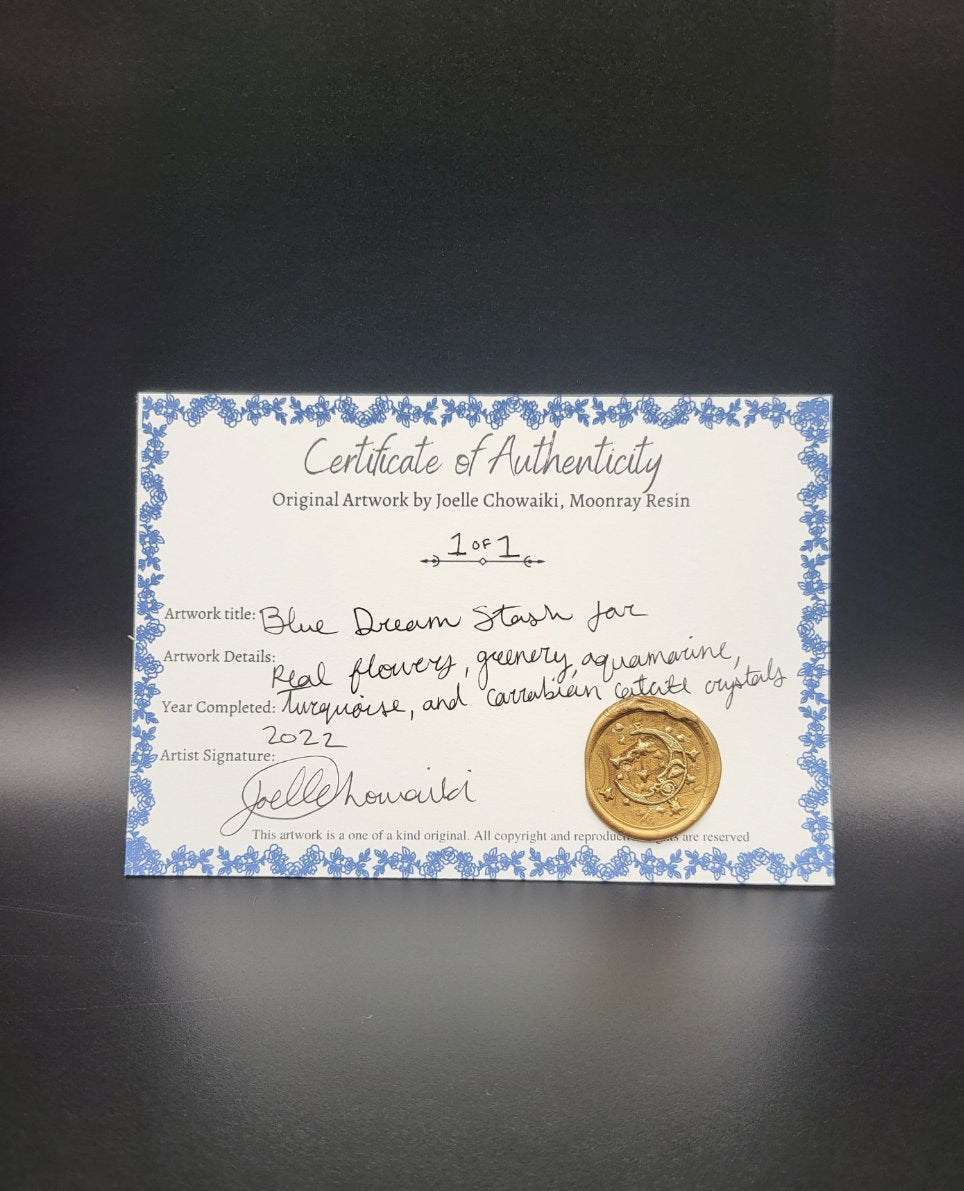 Certificate of Authenticity
Original Artwork by Joelle Chowaiki, Moonray Resin
1 OF 1
Artwork title: Blue Dream Stash Jar
Artwork Details: Real flowers, greenery, aquamarine,
turquoise, and carrabian calcite crystals
Year Completed: 2022
Artist Signature: Joelle Chowaiki
This artwork is a one of a kind original. All copyright and are reserved